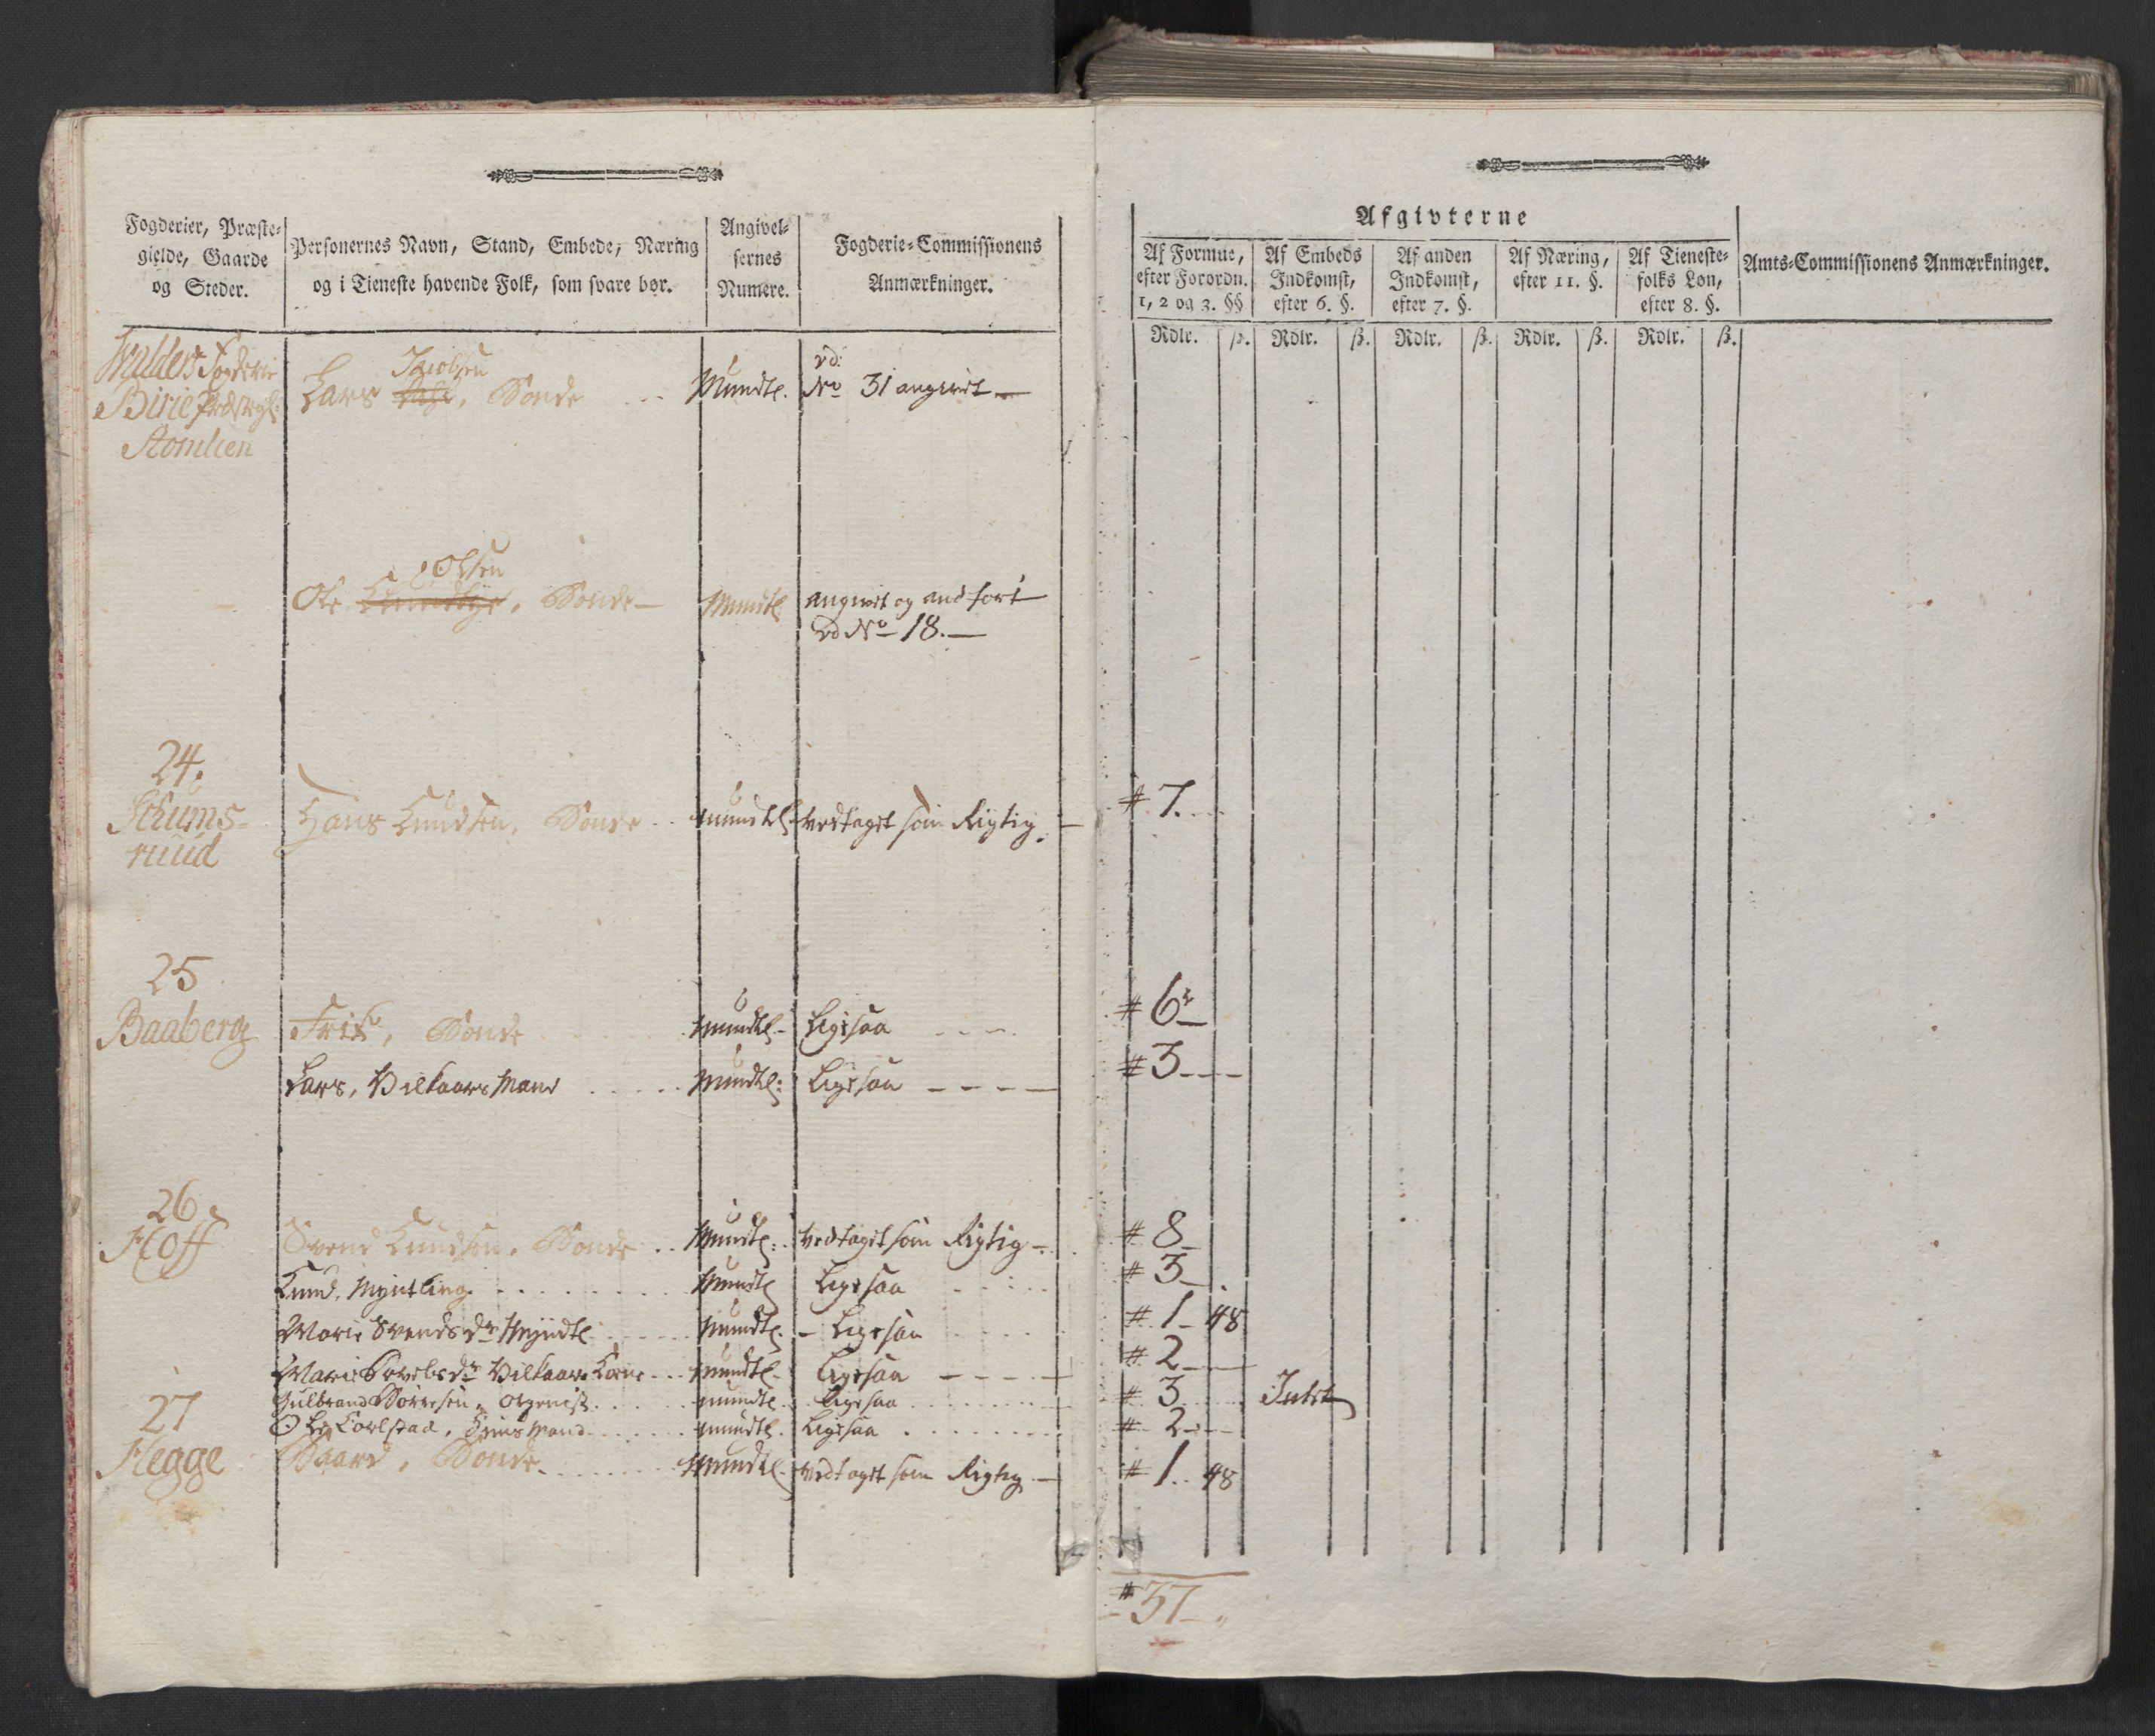 Fogderier, Præste-
gielde, Gaarde
og Steder.
Personernes Navn, Stand, Embede, Næring
og i Tieneste havende Folk, som svare bør.
Angivel-
sernes
Numere.
Fogderie-Commissionens
Anmærkninger.
Fogderie
Birie Præstegl:
Lars Jacobsen, Bonde Mundtl. vd:
No 31 angivet
Ole Olsen, Bonde Mundtl angivet og andført
vd No 18.
24.
Skums-
ruud
Hans Knudsen, Bonde mundtl vedtaget som Rigtig
25
Baaberg
Bonde Mundtl Ligesaa
Lars, Vilkaars Mand Mundtl: Ligesaa
26
Hoff
Svend Knudsen, Bonde Mundtl: vedtaget som Rigtig
Knud, Myntling Mundtl Ligesaa
Marie Svendsdr Myndtl Mundtl. Ligesaa
Marie Vilkaars Kone mundtl Ligesaa
Gulbrand mundtl Ligesaa
27
Hegge
Ole mundtl. Ligesaa
Baard, Bonde Mundtl. vedtaget som Rigtig
Afgivterne
Af Formue,
efter Forordn.
1, 2 og 3. §§
Af Embeds
Indkomst,
efter 6. §.
Af anden
Indkomst,
efter 7. §.
Af Næring,
efter 11. §.
Af Tieneste-
folks Løn,
efter 8. §.
Amts-Commissionens Anmærkninger.
Rdlr. ß. Rdlr. ß. Rdlr. ß. Rdlr. ß. Rdlr. ß.
# 7.
# 6
# 3
# 8
# 3
# 1 48
# 2
# 3 Intet
# 2
# 1 48
# 37